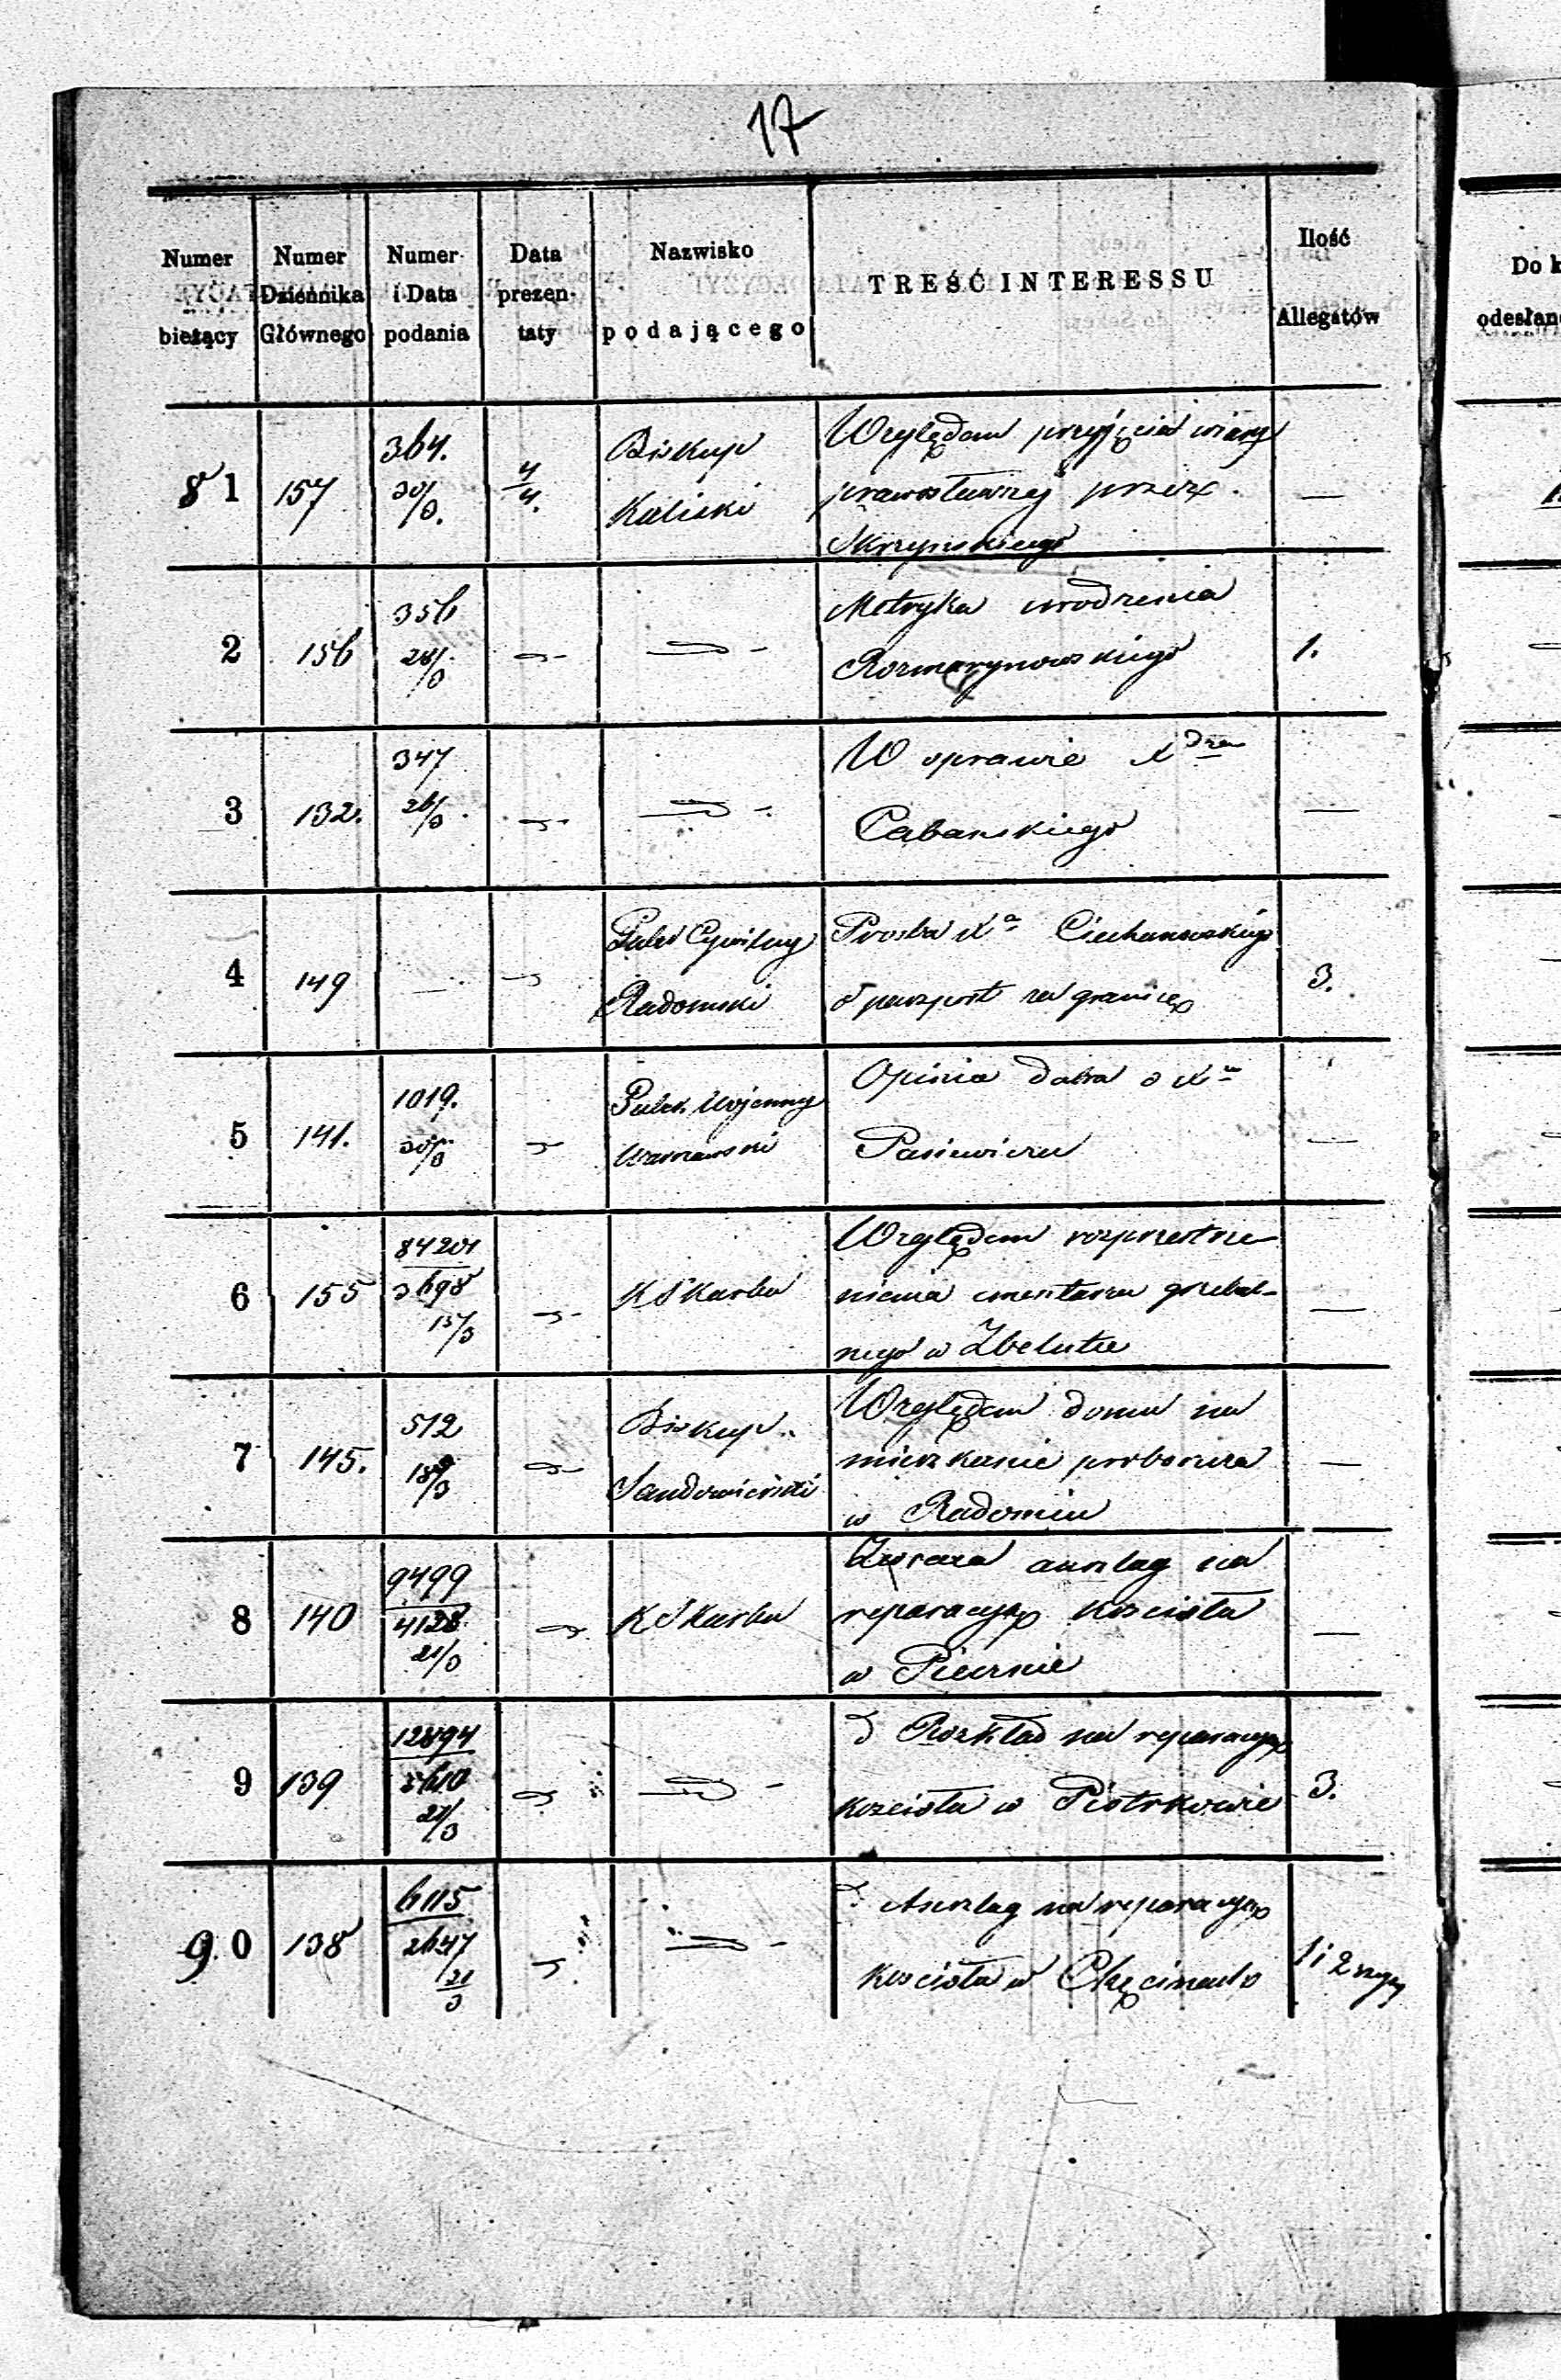 17
Numer bieżący | Numer Dziennika Głównego | Numer i Data podania | Data prezentaty | Nazwisko podającego | TREŚĆ INTERESSU | Ilość Allegatów
81 | 157 | 364. 30/3. | 4/4. | Biskup Kaliski | Względem przyjęcia wiary prawosławnej przez Skrzyńskiego | —
2 | 156 | 356 28/3 | — | — | Metryka urodzenia Rozmarynowskiego | 1.
3 | 132. | 347 26/3 | — | — | W sprawie Xdza Cabańskiego | —
4 | 149 | — | — | Cywilny Radomski | Prośba Xa Ciechanowskiego o paszport za granicę | 3.
5 | 141. | 1019. 30/3 | — | Wojenny Warszawski | Opinia dana o Xu Pasiewiczu | —
6 | 155 | 84201 3698 15/3 | — | K Skarbu | Względem rozprzestrzenienia cmentarza grzebalnego w Zbelutce | —
7 | 145. | 512 18/3 | — | Biskup Sandomierski | Względem domu na mieszkanie proboszcza w Radomiu | —
8 | 140 | 9499 4128 21/3 | — | K Skarbu | Zwraca anszlag na reparacyę kościoła w | —
9 | 139 | 12894 3610 21/3 | — | — | Rozkład na reparacyę kościoła w Piotrkowie | 3.
90 | 138 | 6115 2647 21/3 | — | — | Anszlag na reparacyę kościoła w Chęcinach | 1 i 2
Do k
odesłan